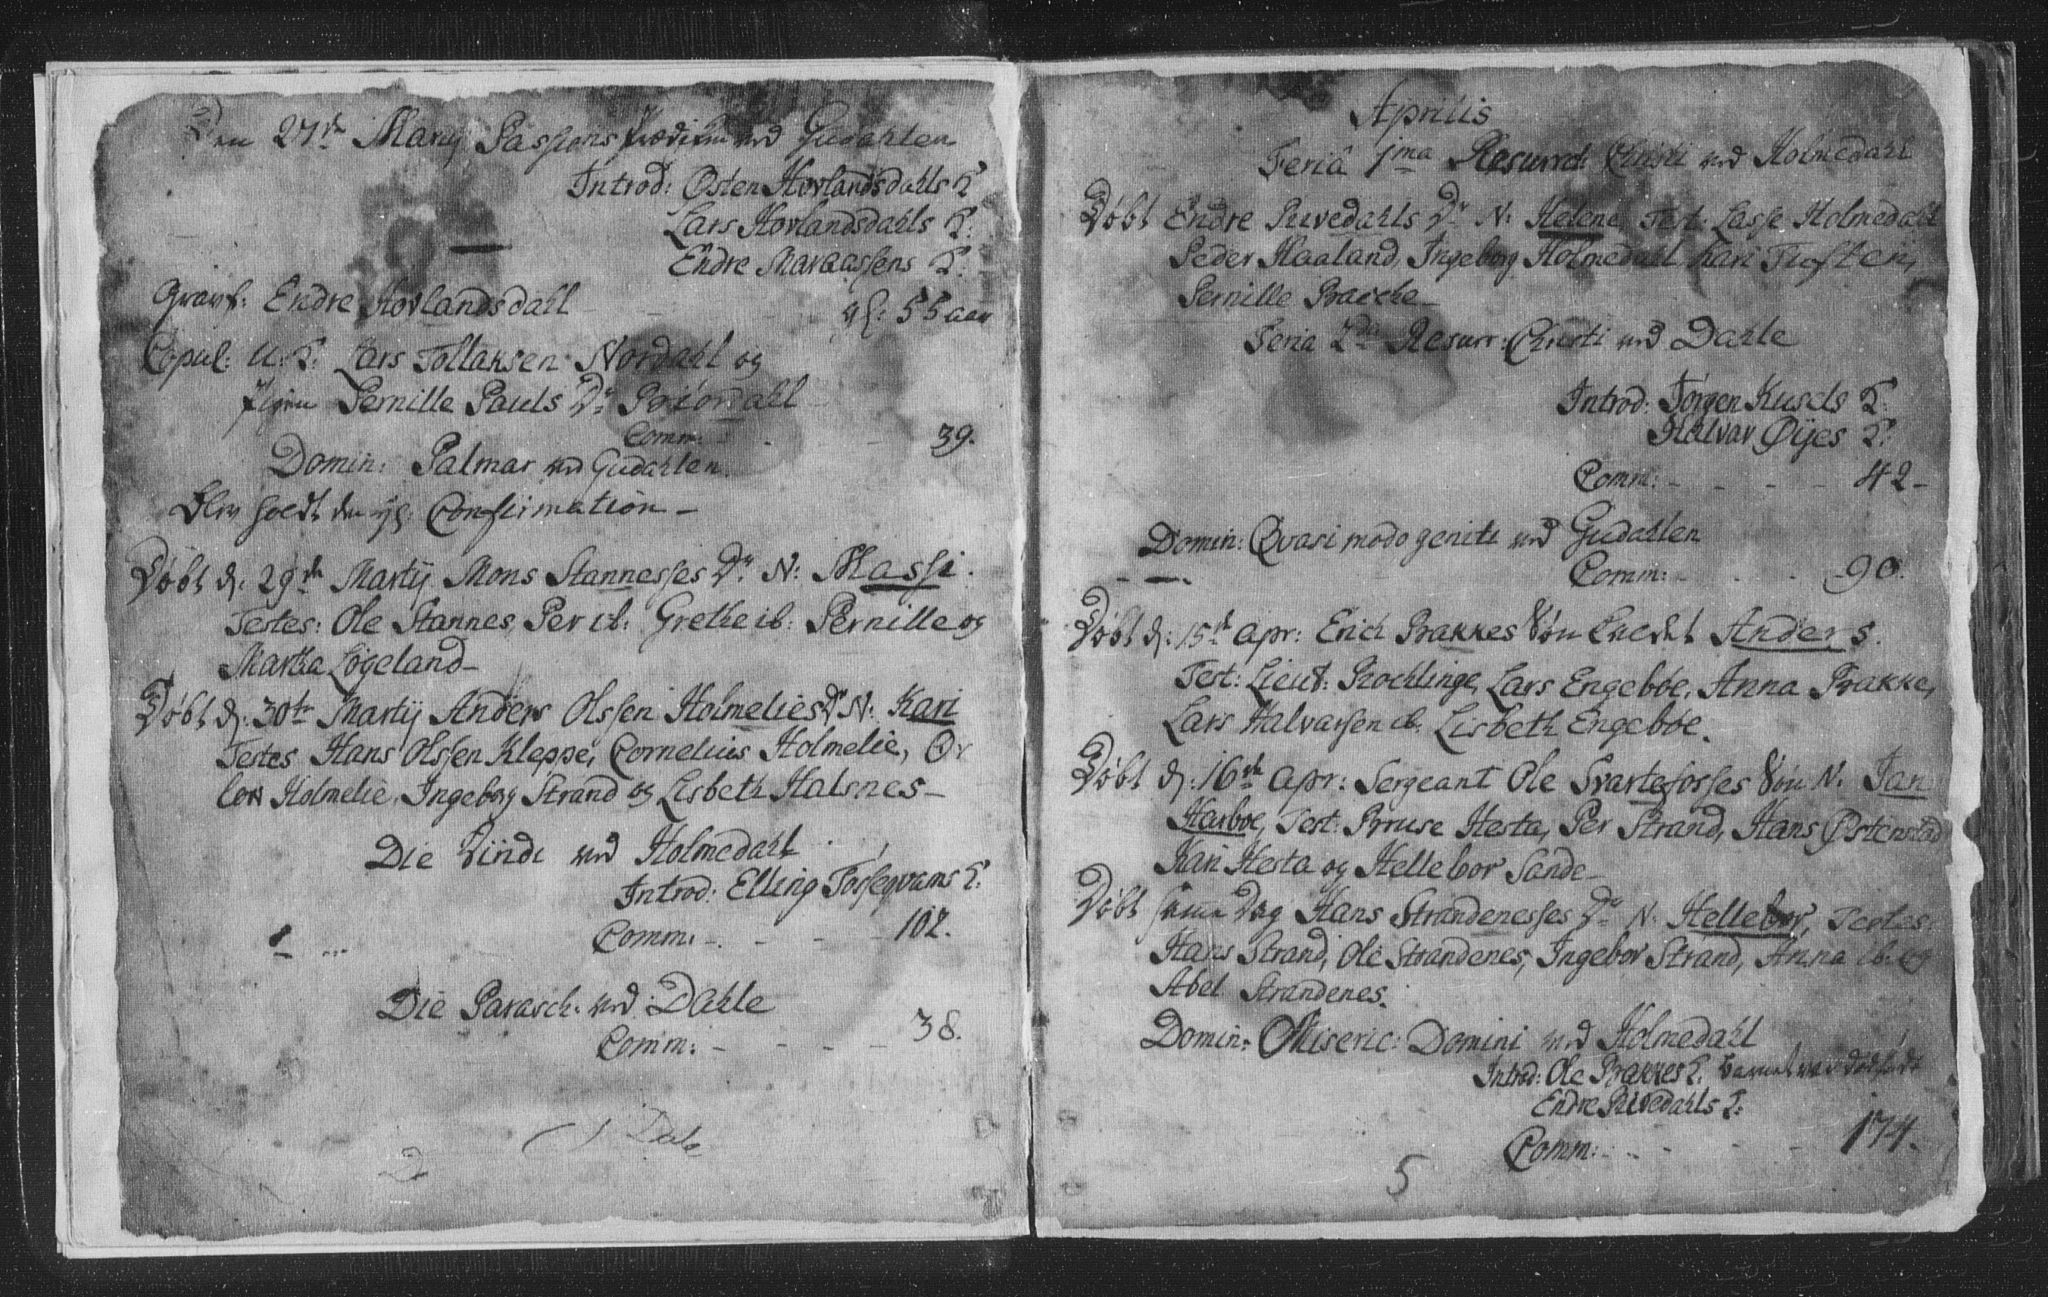 Den 27de Martij Passions Prædiken ved Gudahlen
Introd: Østen Hovlandsdahls K.
Lars Hovlandsdahls K:
Endre Maraassens K:
Gravf: Endre Hovlandsdahl gl: 55 aar
Copul: U: K: Lars Tollaksen Nordahl og
Pigen Pernille Pauls Dr
Comm: - - - 39.
Domin: Palmar ved Gudahlen
blev holdt den Confirmation -
Døbt d: 29de Martij Mons Stannesses Dr N: Massi.
Testes: Ole Stannes, Per ib: Grethe ib: Pernille og
Martha Løgeland -
Døbt d: 30te Martij Anders Olssen Holmelies Dr N: Kari
Testes Hans Olssen Kleppe, Cornelius Holmelie, Or
Holmelie, Ingeborg Strand og Lisbeth Halsnes -
Die Viridi ved Holmedahl
Introd: Elling Fossegvams K:
Comm: - - - 102.
Die Parasch: ved Dahle
Comm: - - - 38.
Dale
Aprilis
Feria 1ma Resurrect: Christi ved Holmedahl
Døbt Endre Rivedahls Dr N: Helene Test: Lasse Holmedahl
Peder Haaland, Ingeborg Holmedahl Kari
Pernille Bracke -
Feria 2da Resurr: Christi ved Dahle
Introd: Jørgen Kusels K:
Halvar Øyes K:
Comm: - - - - 42 -
Domin: Qvasi modo geniti ved Gudahlen
Comm: - - - 90.
Døbt d: 15de apr: Erich Brakkes Søn kaldet Anders.
Test: Lieut: Rochlinge, Lars Engebøe, Anna Brakke,
Lars Halvarsen ib: Lisbeth Engebøe.
Døbt d: 16de apr: Sergeant Ole Svartefosses Søn N: Jan
Harboe, Test: Bruse Hesta, Per Strand, Hans Østenstad
Kari Hesta og Hellebor Sande -
Døbt samme Dag Hans Strandenesses Dr N: Hellebor, Testes:
Hans Strand, Ole Strandenes, Ingebor Strand, Anna ib: og
Abel Strandenes.
Domin: Miseric: Domini ved Holmedahl
Introd: Ole Brakkes K: barnet var dødfødt
Endre Rivedahls K:
Comm: - - - - 174.
5